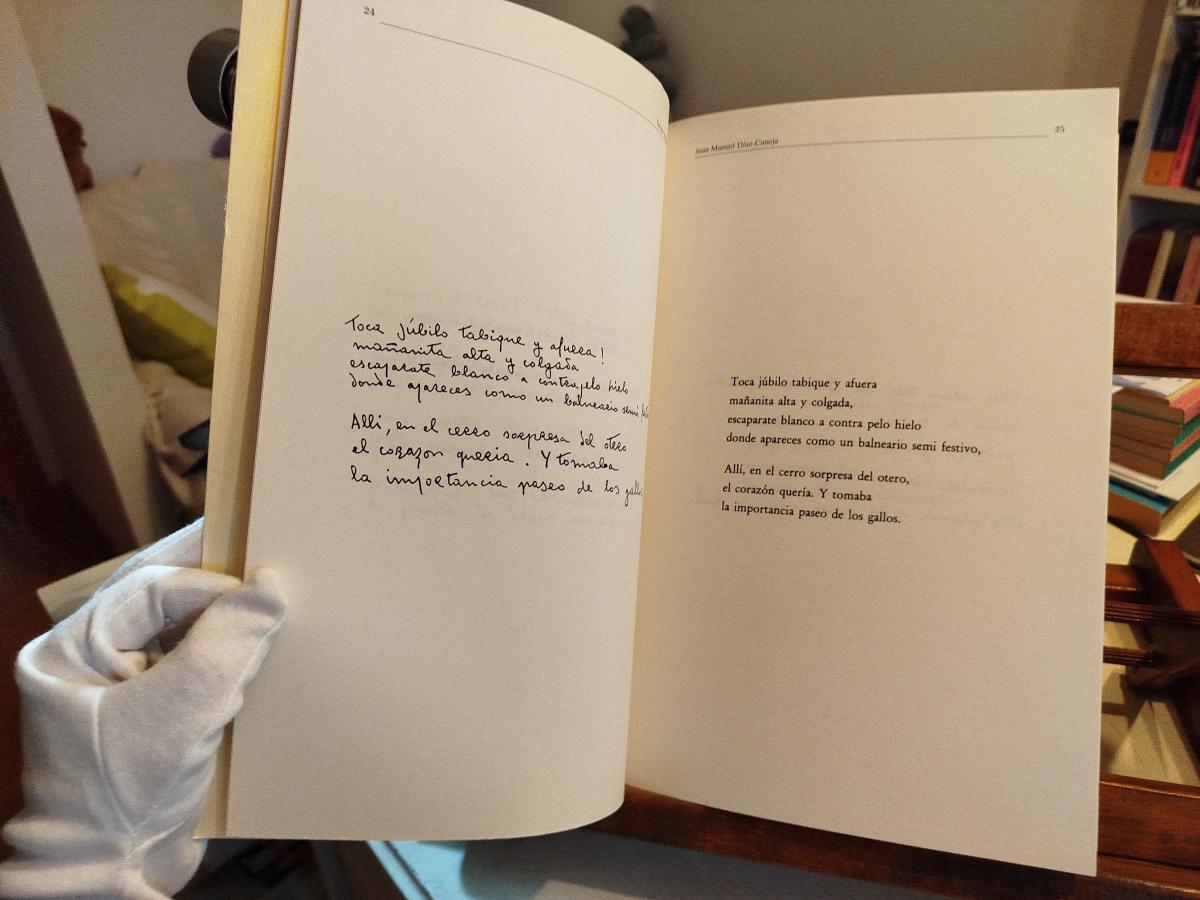 24
Toca júbilo tabique y afuera!
mañanita alta y colgada
escaparate blanco a contra pelo hielo
donde apareces como un balneario semi
Allí, en el cerro sorpresa del otero
el corazon queria. Y tomaba
la importancia paseo de los gallos
Juan Manuel Díaz-Caneja
25
Toca júbilo tabique y afuera
mañanita alta y colgada,
escaparate blanco a contra pelo hielo
donde apareces como un balneario semi festivo,
Allí, en el cerro sorpresa del otero,
el corazón quería. Y tomaba
la importancia paseo de los gallos.